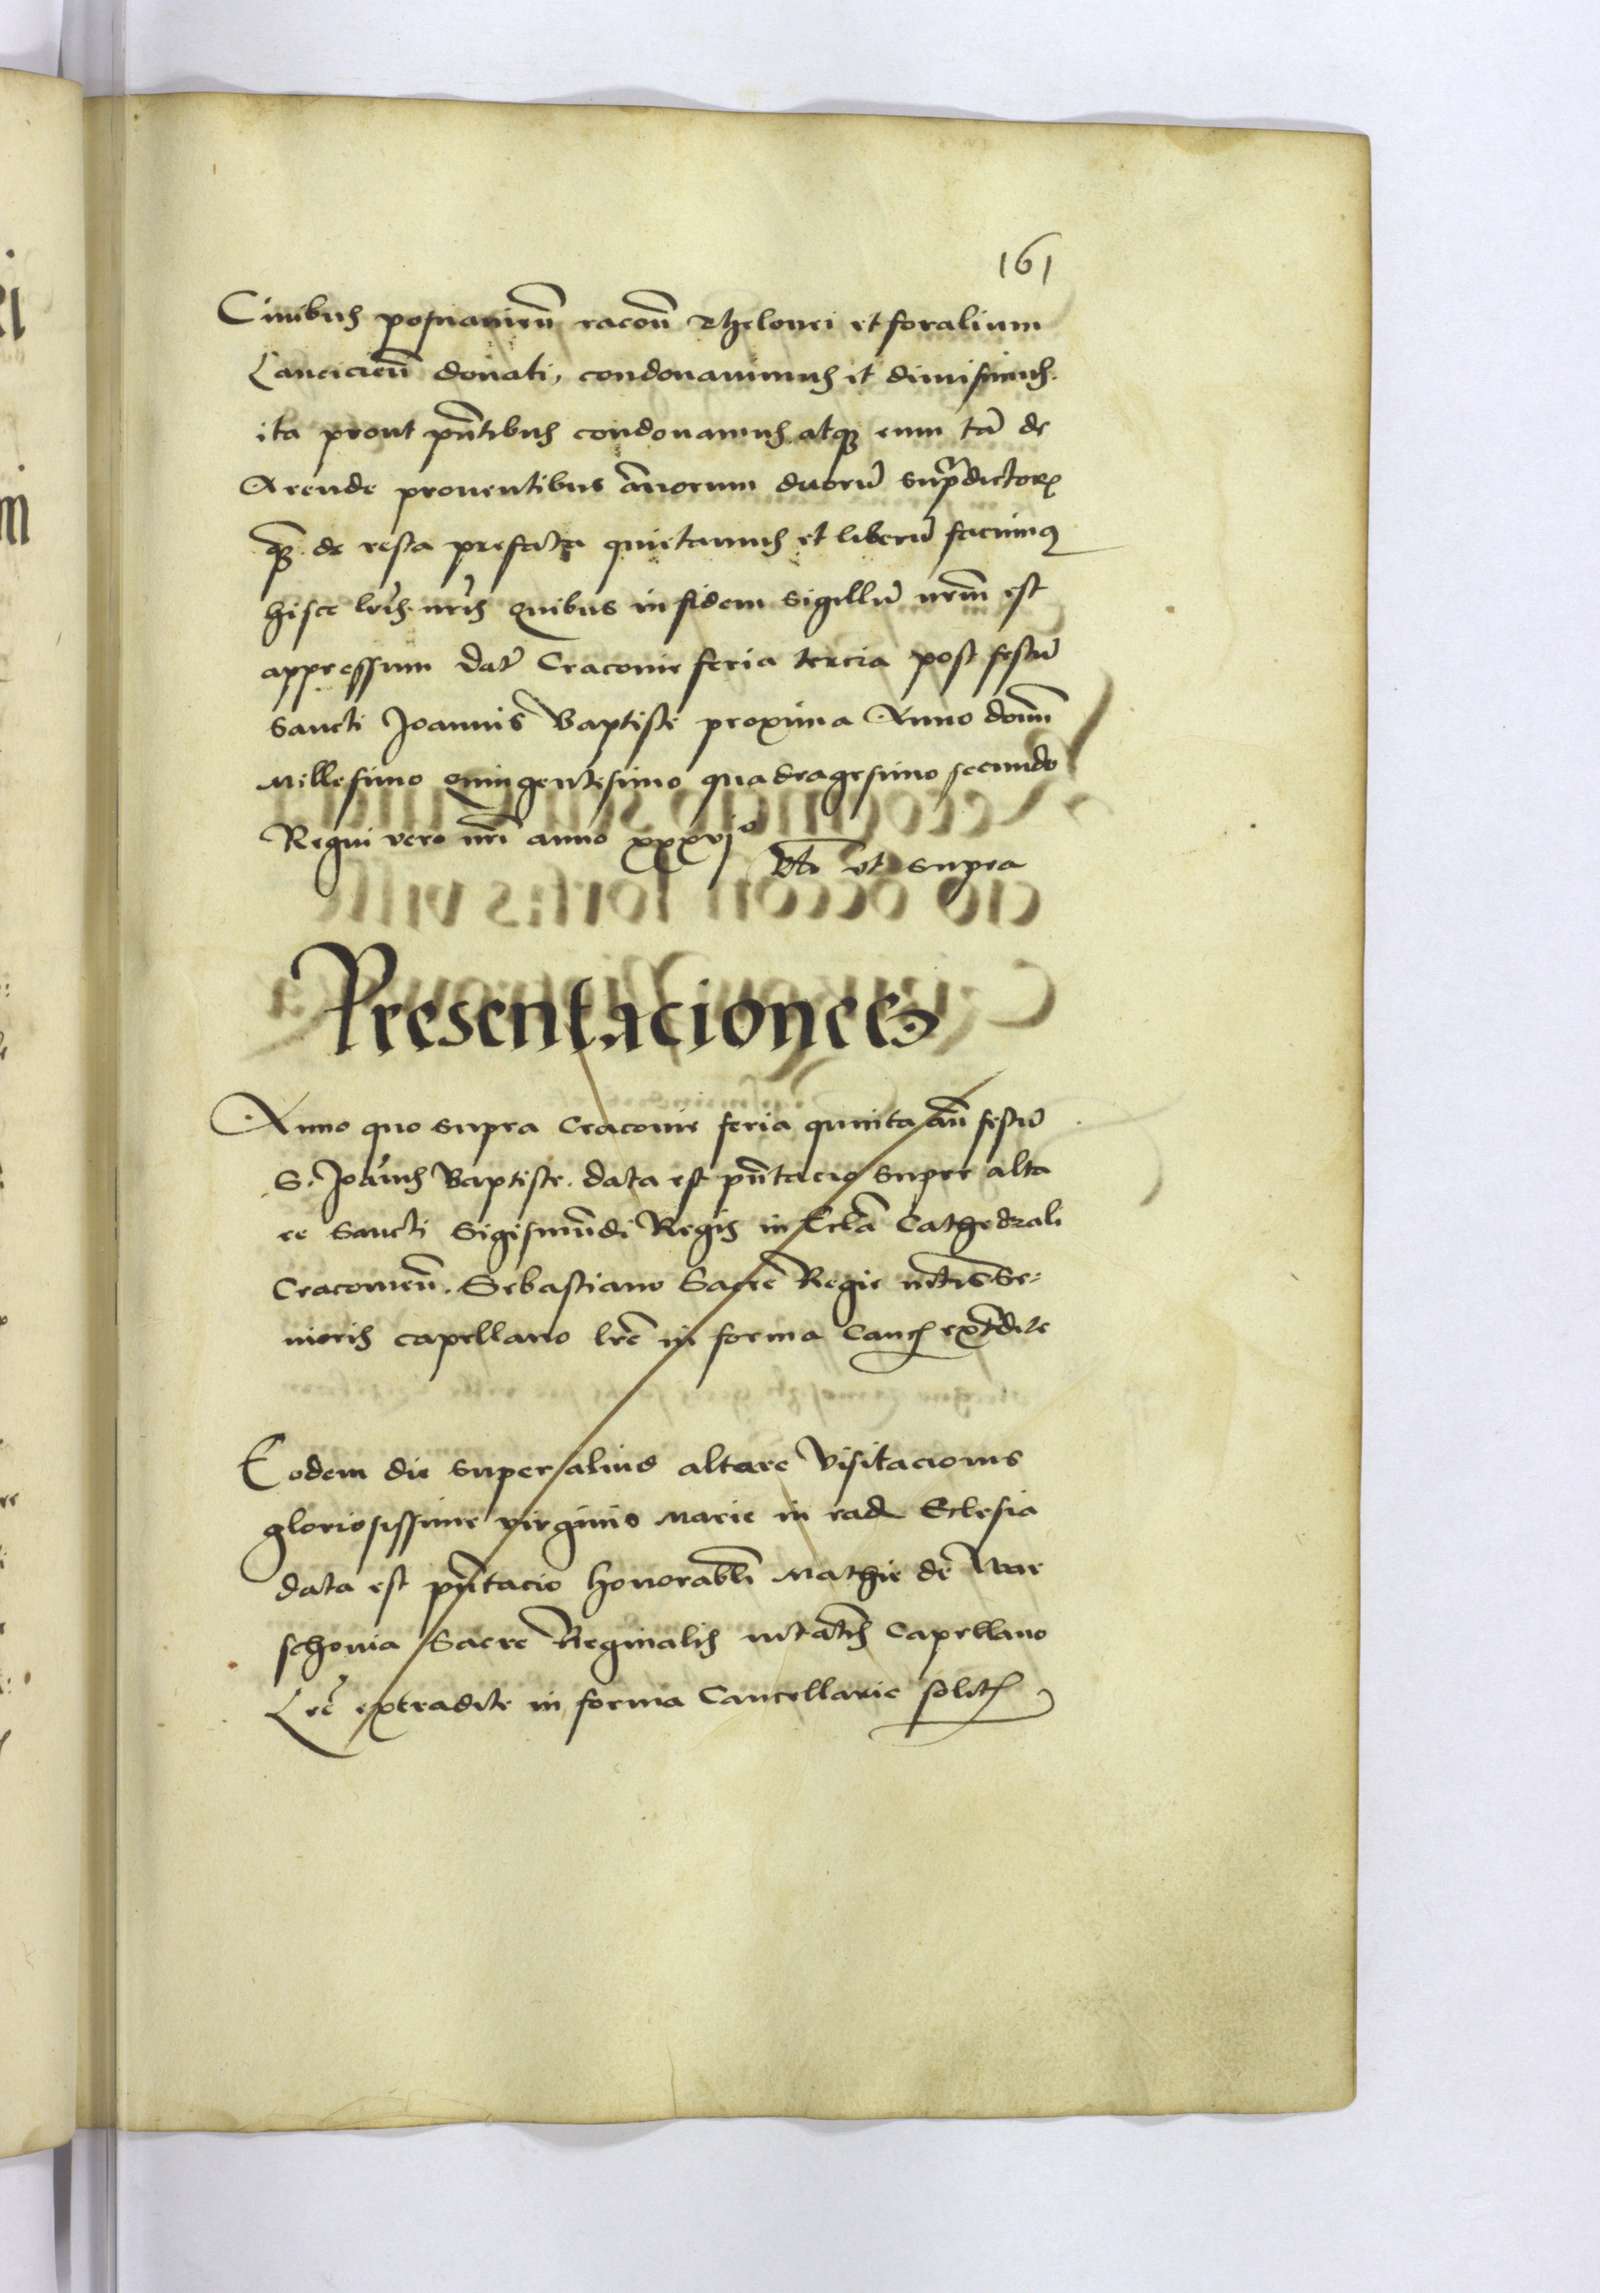 161
Civibus posnanieñ racoñ Thelonei et foralium
Lancicieñ donati, condonavimus et dimisimus.
ita prout pñtibus condonamus atqʒ eum tā de
Arende proventibus āñorum duorū supradictorꝝ
qʒ de resta prefata quietamus et liberū facimus
hisce lrīs nrīs quibus in fidem sigillū nrm̄ est
appressum datꝰ Cracovie feria tercia post festū
Sancti Joannis Baptiste proxima Anno dom̄
Millesimo quingentesimo quadragesimo secundo
Regni vero nrī anno xxxvjº
Rta ut supra
Presentaciones
Anno quo supra Cracovie feria quinta añ festū
S. Joānis Baptiste. data est pñtacio super alta
re Sancti Sigismūdi Regis in Ecclā Cathedrali
Cracovieñ. Sebastiano Sacre Regie mtis Se-
nioris capellano lrē in forma Canc extradite
Eodem die super alius altare Visitacionis
gloriosissime virginis Marie in ead Eclesia
data est pñtacio honorabli Mathie de War
schovia Sacre Reginalis mtatis Capellano
Lrē extradite in forma Cancellarie solit